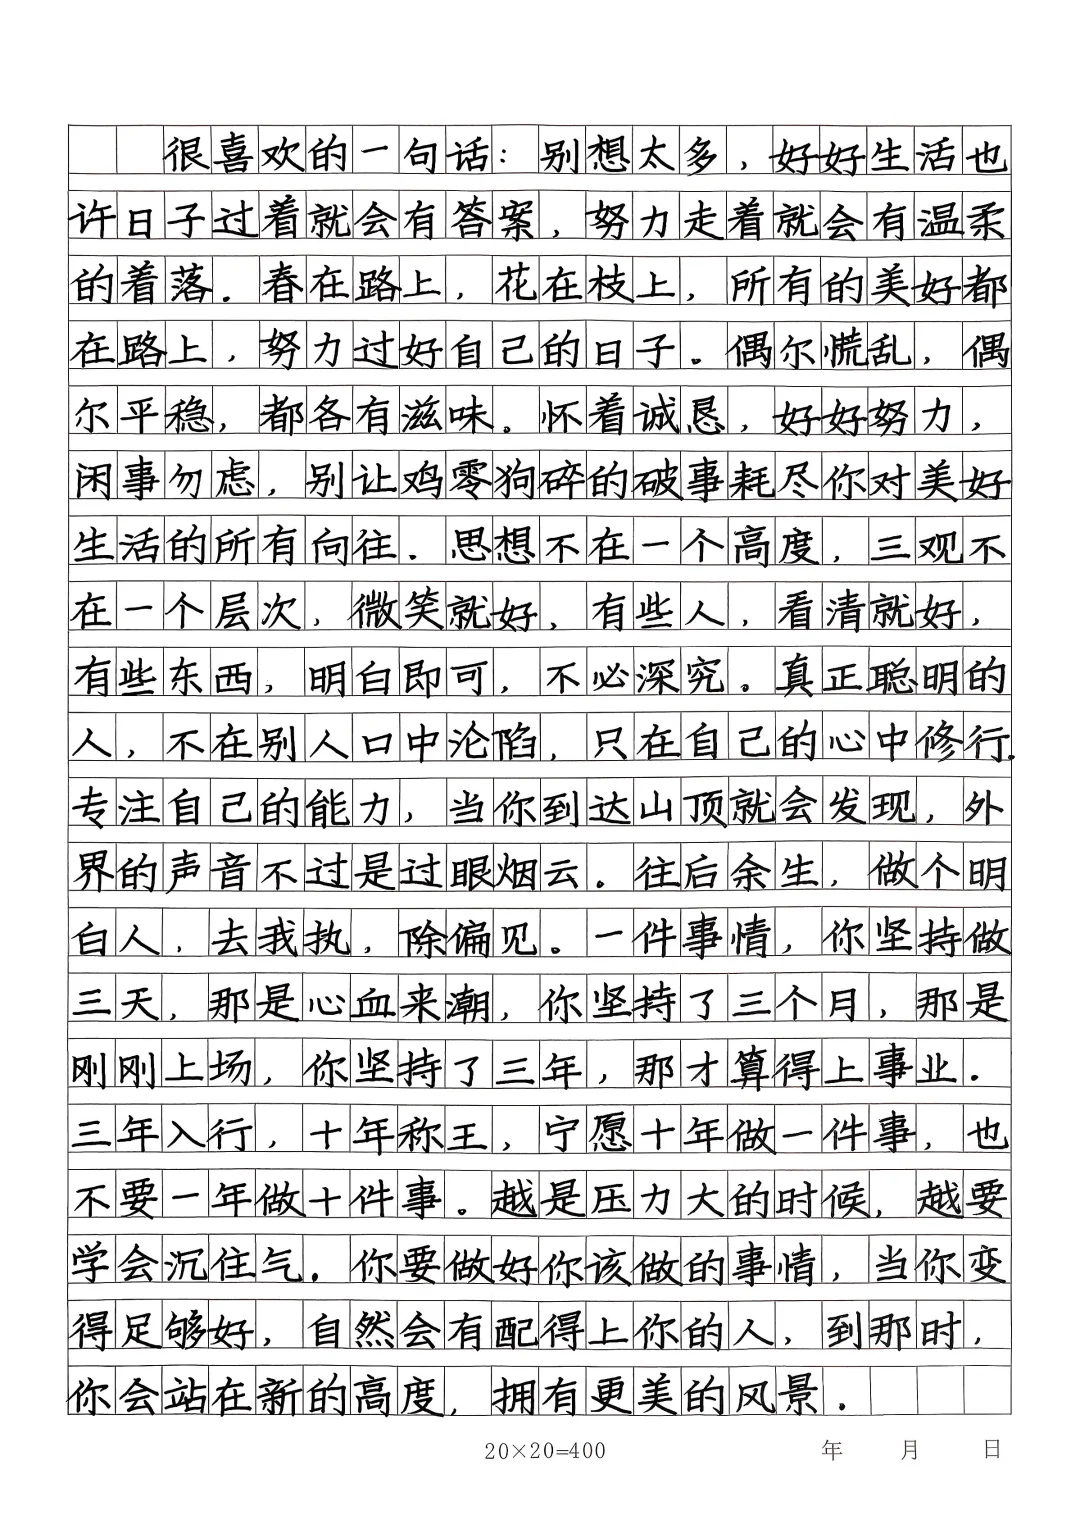 很喜欢的一句话：别想太多，好好生活也
许日子过着就会有答案，努力走着就会有温柔
的着落.春在路上，花在枝上，所有的美好都
在路上，努力过好自己的日子。偶尔慌乱，偶
尔平稳，都各有滋味。怀着诚恳，好好努力，
闲事勿虑，别让鸡零狗碎的破事耗尽你对美好
生活的所有向往.思想不在一个高度，三观不
在一个层次，微笑就好，有些人，看清就好，
有些东西，明白即可，不必深究。真正聪明的
人，不在别人口中沦陷，只在自己的心中修行.
专注自己的能力，当你到达山顶就会发现，外
界的声音不过是过眼烟云。往后余生，做个明
白人，去我执，除偏见。一件事情，你坚持做
三天，那是心血来潮，你坚持了三个月，那是
刚刚上场，你坚持了三年，那才算得上事业.
三年入行，十年称王，宁愿十年做一件事，也
不要一年做十件事。越是压力大的时候，越要
学会沉住气.你要做好你该做的事情，当你变
得足够好，自然会有配得上你的人，到那时，
你会站在新的高度，拥有更美的风景.
20×20=400 年 月 日